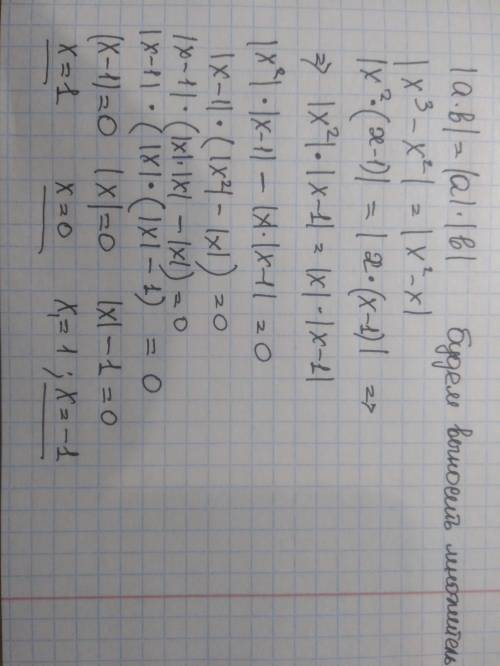 |a·b| = |a|·|b| будем выносить множитель
|x³ - x²| = |x² - x|
|x²·(x-1)| = |x·(x-1)| =>
=> |x²|·|x-1| = |x|·|x-1|
|x²|·|x-1| - |x|·|x-1| = 0
|x-1|·(|x²| - |x|) = 0
|x-1|·(|x|·|x| - |x|) = 0
|x-1|·(|x|·(|x| - 1) = 0
|x-1| = 0 |x| = 0 |x| - 1 = 0
x = 1 x = 0 x₁ = 1; x = -1